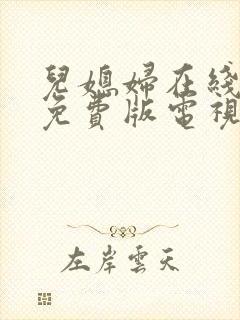 兒媳婦在綫
免費版電視
左岸雲天